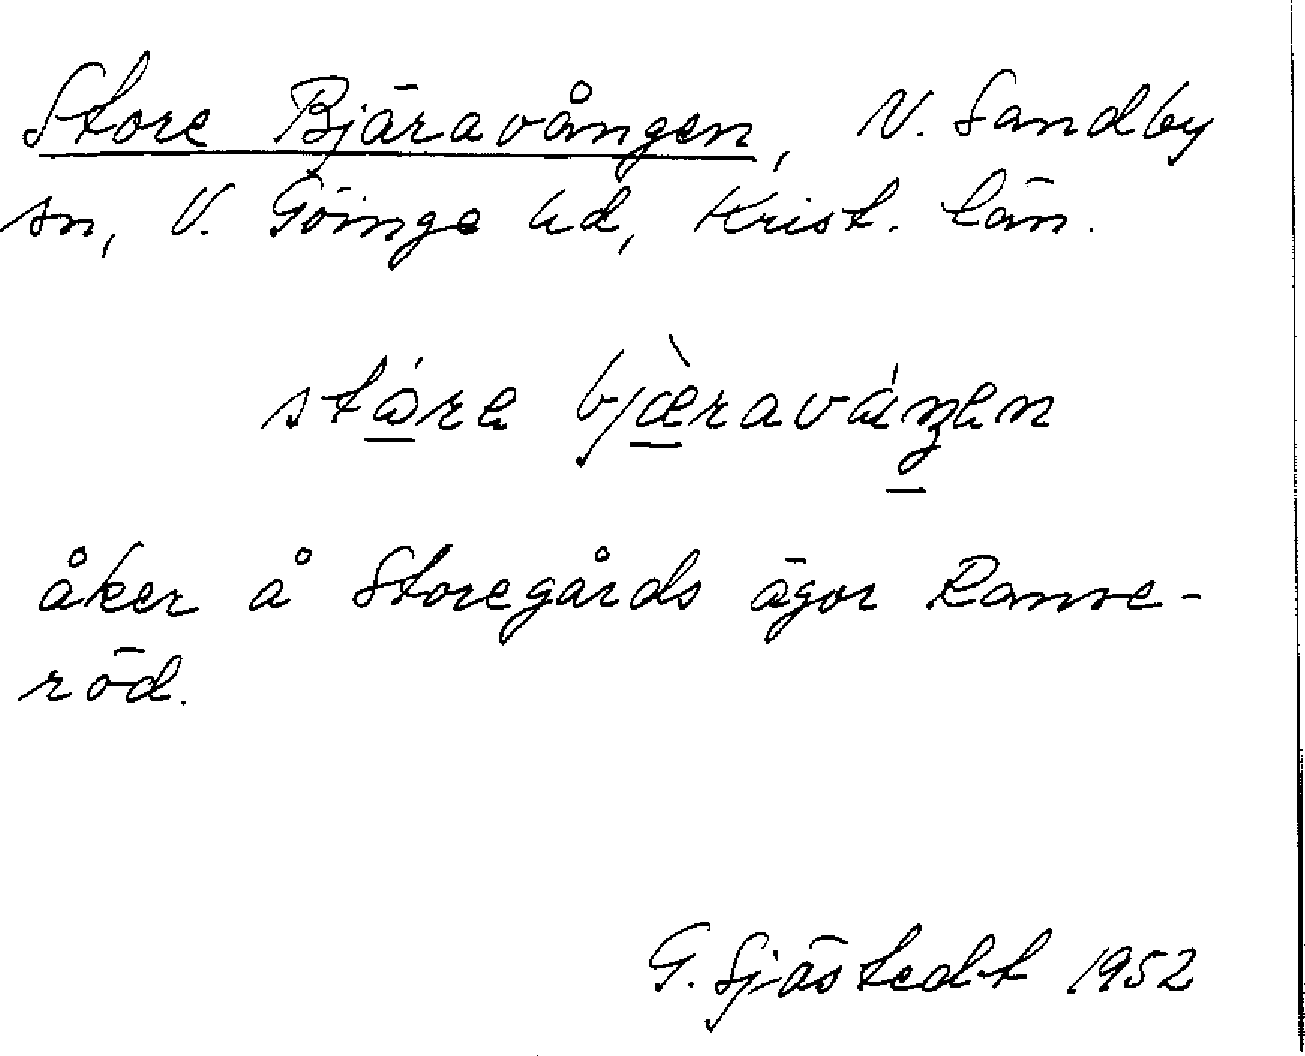 Store Bjäravången, N. Sandby
sn, V. Göinge hd, Krist. län.
stóre bjæ̀raváŋen
åker å Storegårds ägor Ranse-
röd.
G. Sjöstedt 1952